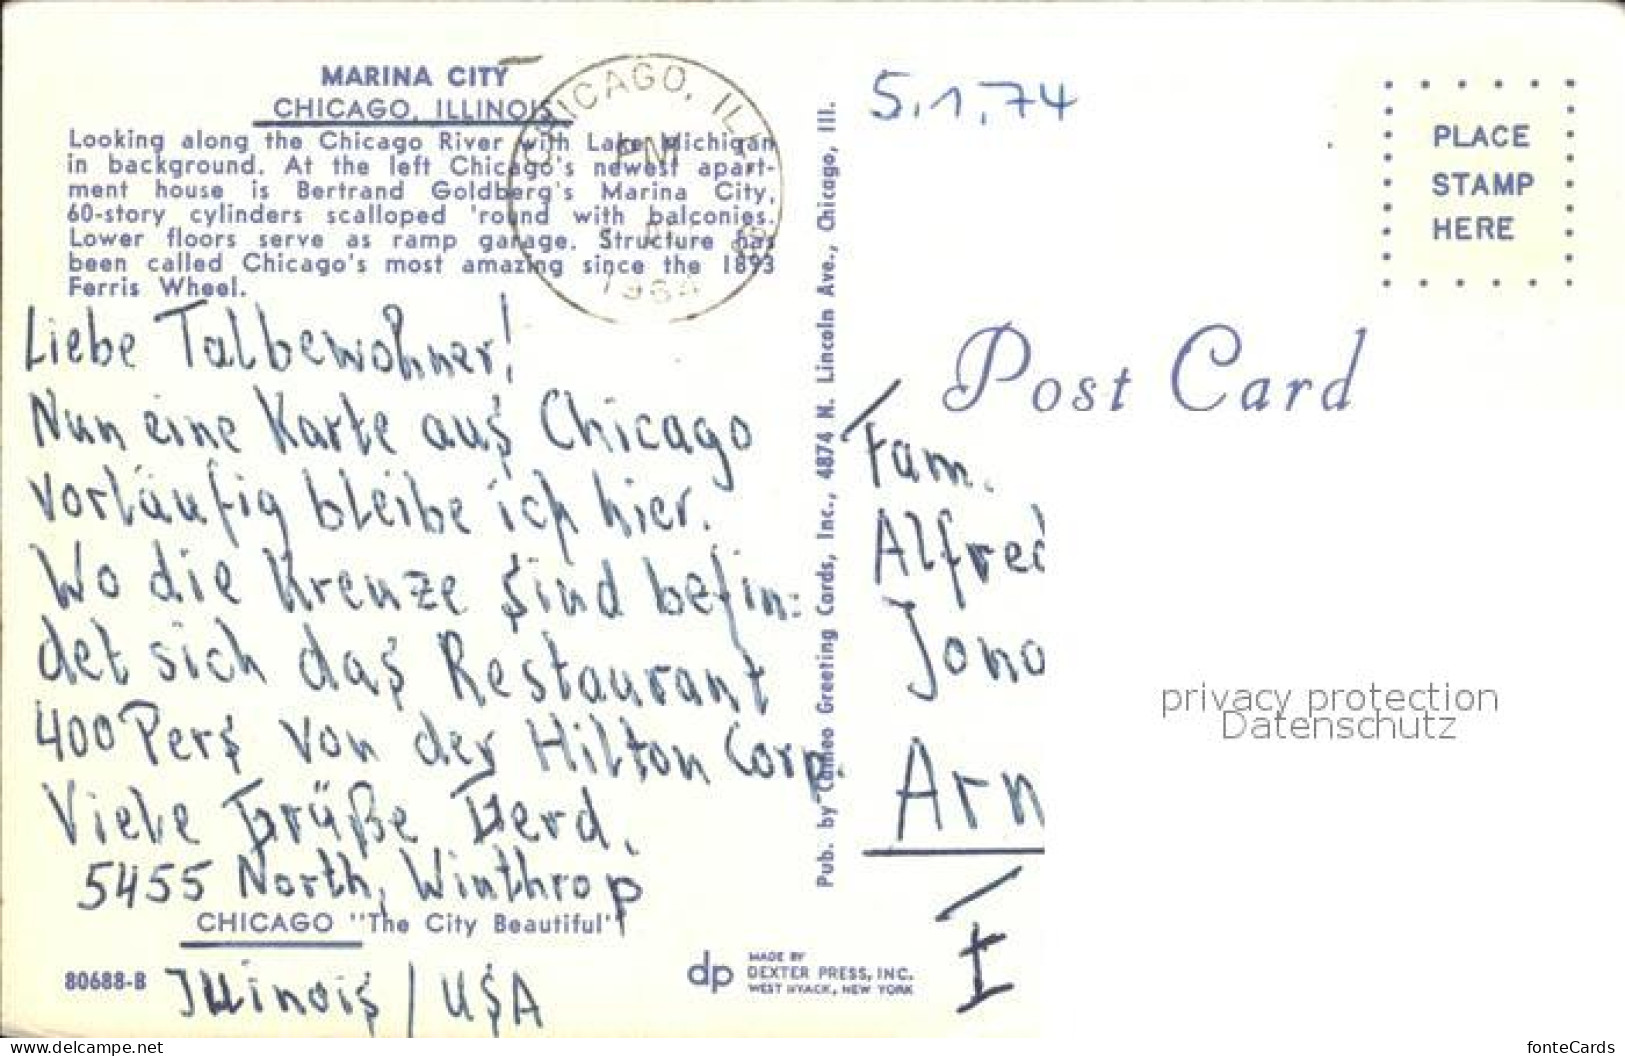 MARINA CITY
CHICAGO, ILLINOIS
Looking along the Chicago River with Lake Michigan
in background. At the left Chicago's newest apart-
ment house is Bertrand Goldberg's Marina City,
60-story cylinders scalloped 'round with balconies.
Lower floors serve as ramp garage. Structure has
been called Chicago's most amazing since the 1893
Ferris Wheel.
CHICAGO, ILL.
PM
1964
Liebe Talbewohner!
Nun eine Karte aus Chicago
vorläufig bleibe ich hier.
Wo die Kreuze sind befin=
det sich das Restaurant
400 Pers von der Hilton Corp.
Viele Grüße Gerd.
5455 North, Winthrop
CHICAGO "The City Beautiful"
80688-B
Illinois / USA
dp
MADE BY
DEXTER PRESS, INC.
WEST NYACK, NEW YORK
Pub. by Cameo Greeting Cards, Inc., 4874 N. Lincoln Ave., Chicago, Ill.
5.1.74
PLACE
STAMP
HERE
Post Card
Fam.
Alfred
Jona
Arn
I
privacy protection
Datenschutz
www.delcampe.net
fonteCards